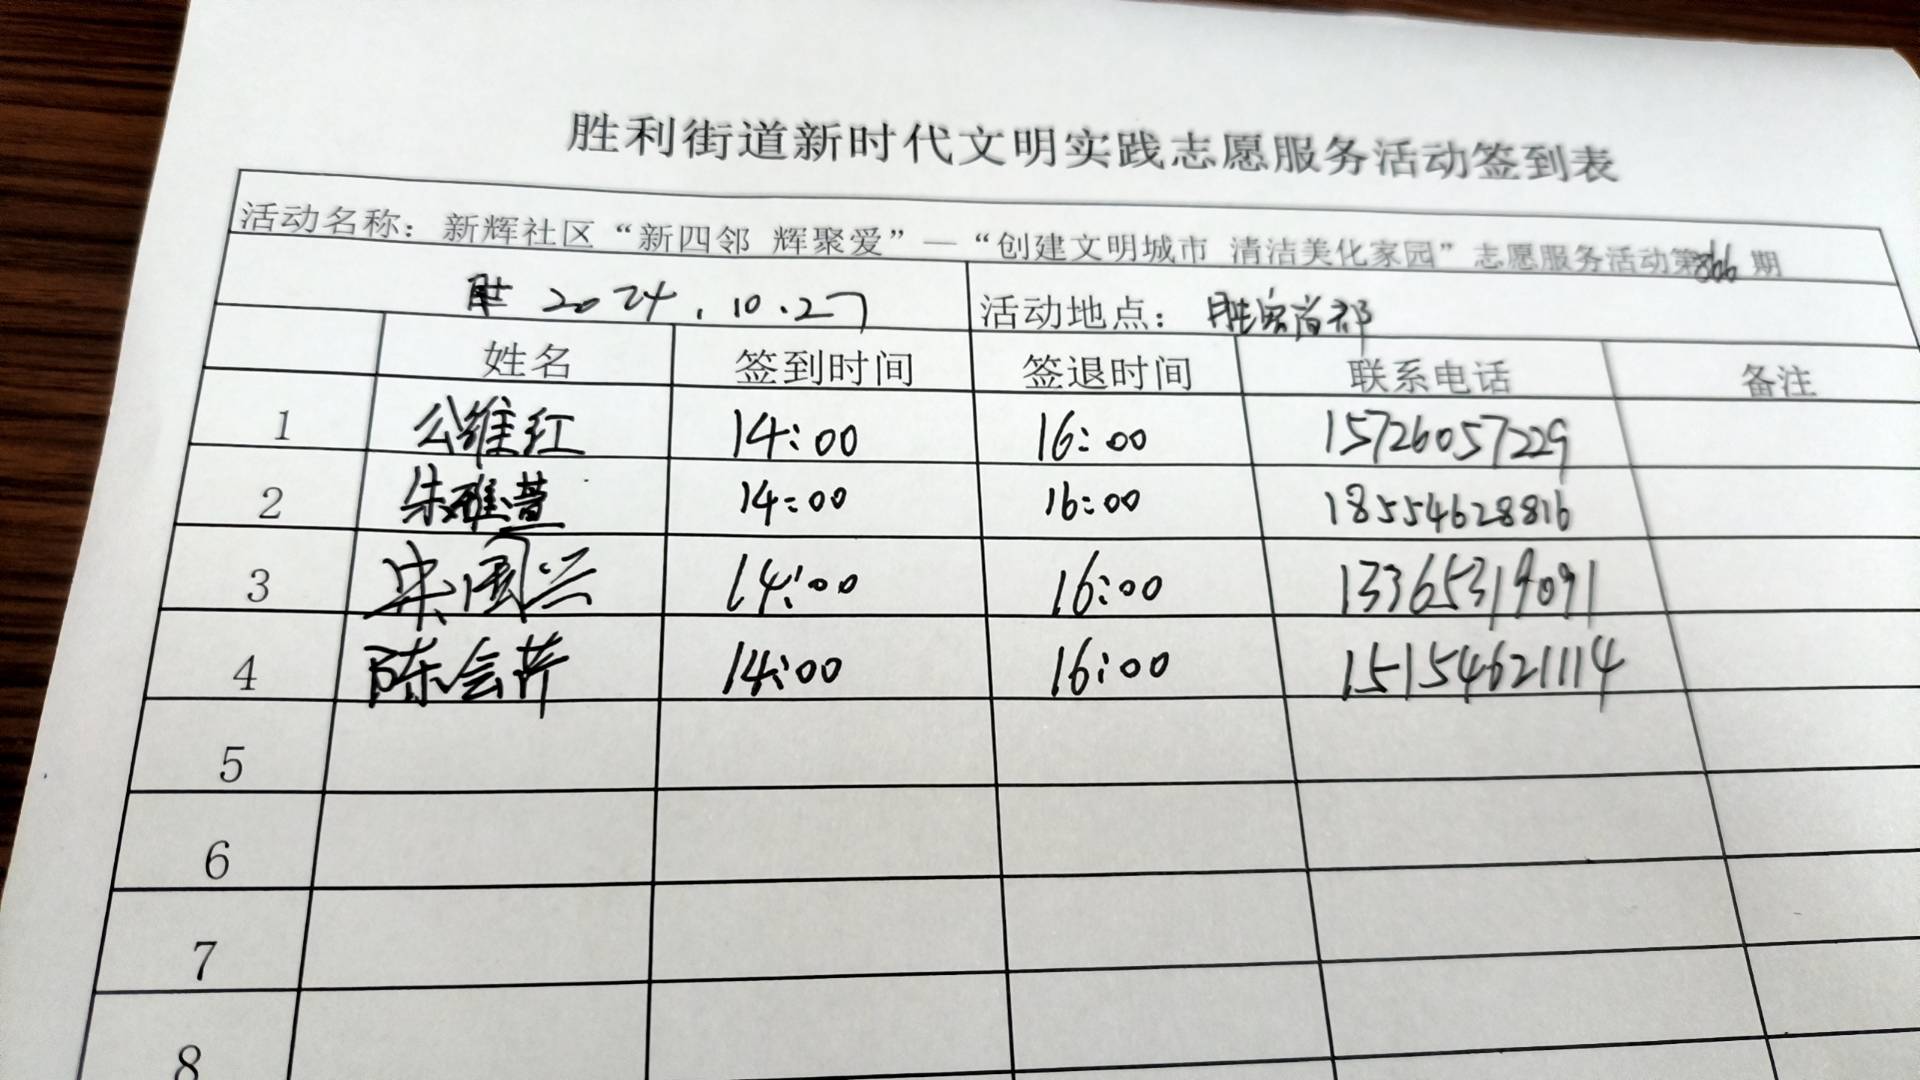 胜利街道新时代文明实践志愿服务活动签到表
活动名称：新辉社区“新四邻 辉聚爱”—“创建文明城市 清洁美化家园”志愿服务活动第866期
2024.10.27 活动地点：胜宏首郡
姓名 签到时间 签退时间 联系电话 备注
1 公维红 14:00 16:00 15726057229
2 朱雅萱 14:00 16:00 18554628816
3 国兴 14:00 16:00 13365319091
4 陈会芹 14:00 16:00 15154621114
5
6
7
8